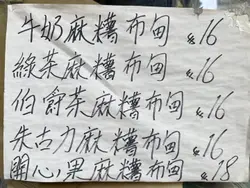 牛奶麻糬布甸 $16
綠茶麻糬布甸 $16
伯爵茶麻糬布甸 $16
朱古力麻糬布甸 $16
開心果麻糬布甸 $18